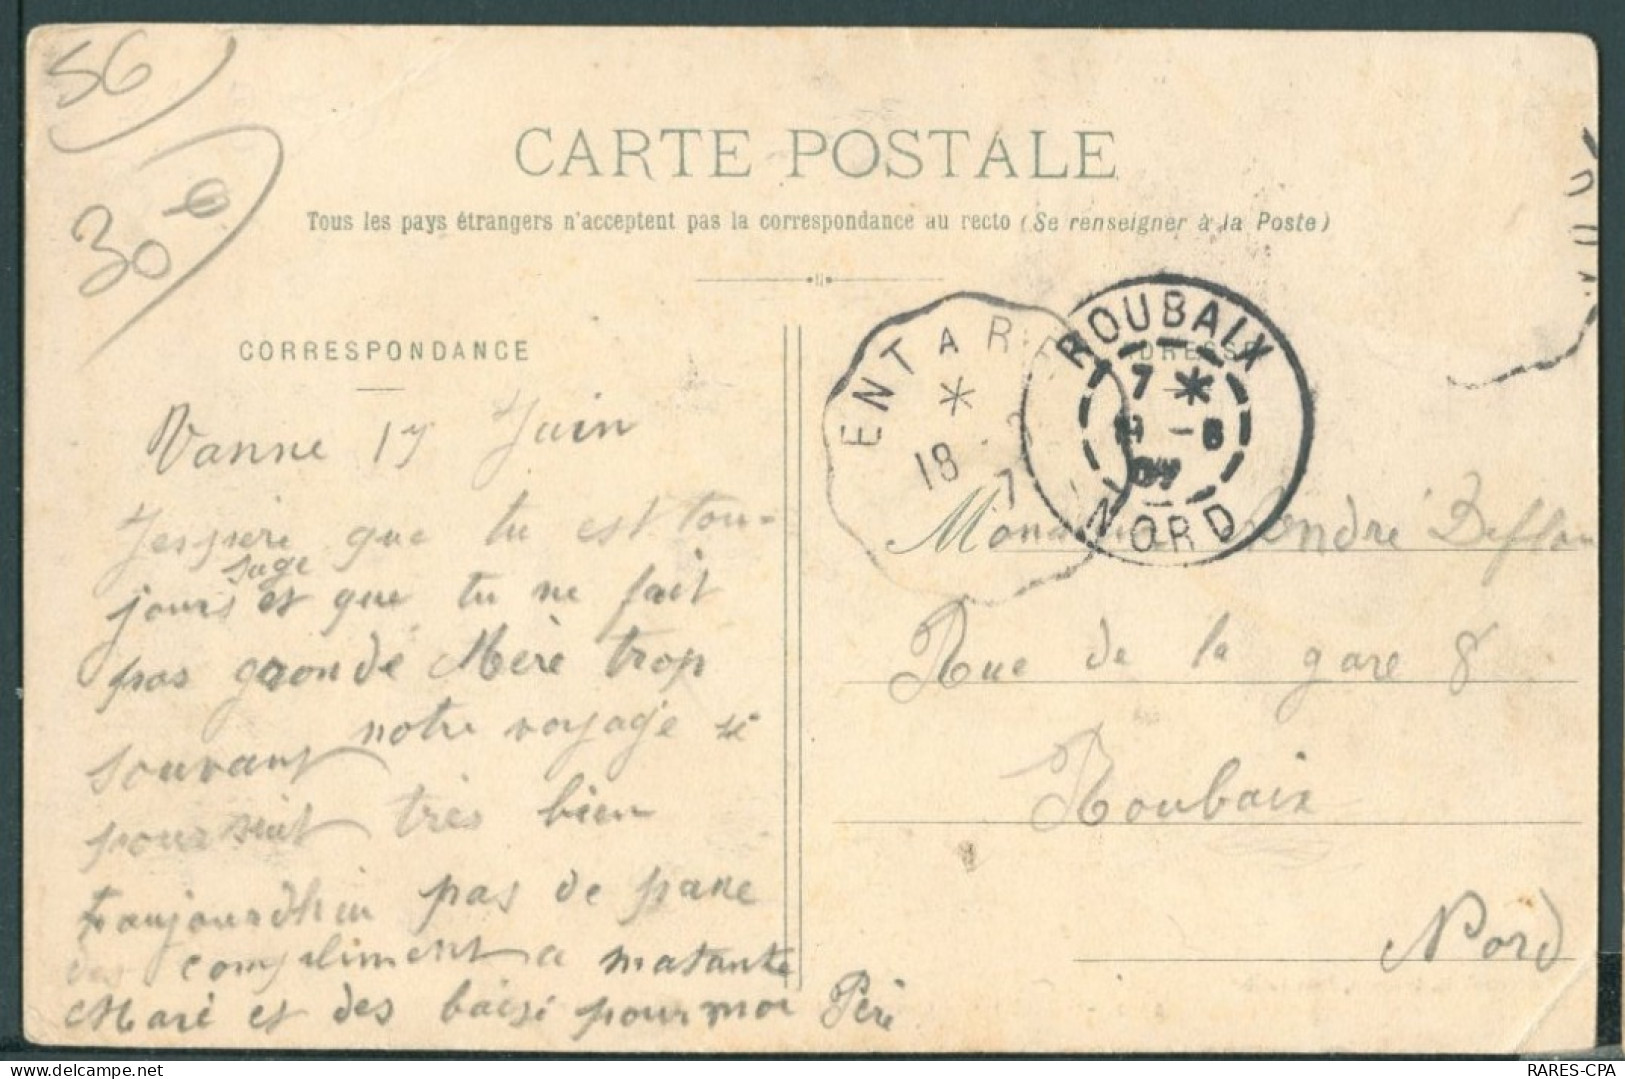 56
30 €
CARTE POSTALE
Tous les pays étrangers n'acceptent pas la correspondance au recto (Se renseigner à la Poste)
CORRESPONDANCE
ADRESSE
ENTAR
18
7
ROUBAIX
7 *
-6
07
NORD
Vanne 17 Juin
Jespère que tu est tou-
sage
jours et que tu ne fait
pas gronde Mère trop
souvant notre voyage se
poursuit très bien
aujourdhui pas de pane
des compliment a matante
Marie et des baisé pour moi Père
Monsieur André Deflou
Rue de la gare 8
Roubaix
Nord
RARES-CPA